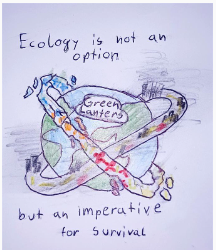 Ecology is not an
option
Green
Lanters
but an imperative
for survival